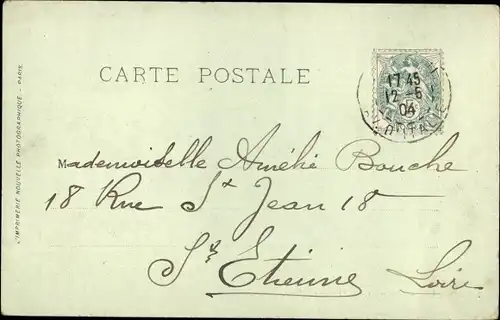 CARTE POSTALE
17 45
12 - 6
04
D'ITALIE
Mademoiselle Amélie Bouche
18 Rue St Jean 18
St Etienne Loire
L'IMPRIMERIE NOUVELLE PHOTOGRAPHIQUE - PARIS